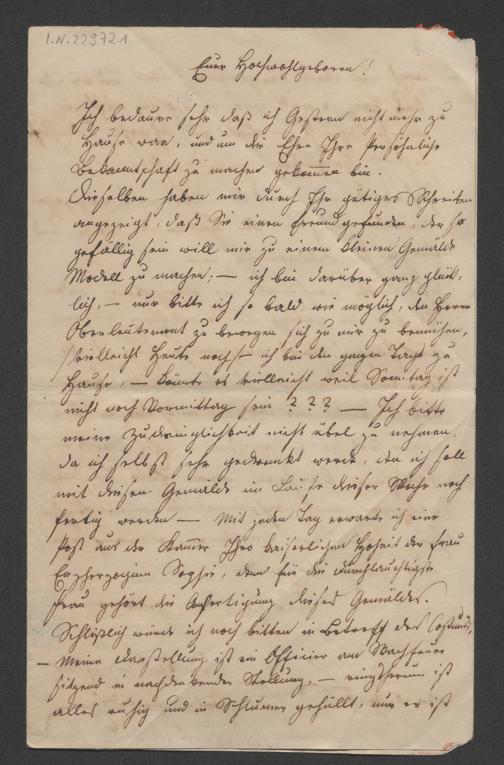 I.N. 229721
Euer Hochwohlgeboren!
Ich bedaure sehr daß ich Gestern nicht mehr zu
Hause war, und um die Ehre Ihre Persönliche
Bekanntschaft zu machen gekommen bin.
Dieselben haben mir durch Ihr gütiges Schreiben
angezeigt, daß Sie einen Freund gefunden, der so
gefällig sein will mir zu einem kleinen Gemälde
Modell zu machen; — ich bin darüber ganz glück-
lich, — nur bitte ich so bald wie möglich, den Herrn
Oberleutenant zu bewegen sich zu mir zu bemühen,
vielleicht Heute noch — ich bin den ganzen Tag zu
Hause, — könnte es vielleicht weil Sonntag ist
nicht noch Vormittag sein ? ? ? — Ich bitte
meine Zudringlichkeit nicht übel zu nehmen,
da ich selbst sehr gedrängt werde, den ich soll
mit diesen Gemälde im Laufe dieser Woche noch
fertig werden — Mit jeden Tag erwarte ich eine
Post aus der Kammer Ihro kaiserlichen Hoheit der Frau
Erzherzoginn Sophie, denn für die durchlauchtigste
Frau gehört die Anfertigung dieses Gemäldes.
Schlüßlich würde ich noch bitten in Betreff des Costüms,
— Meine Darstellung ist ein Officier am Wachfeuer
sitzend in nachdenkender Stellung, — ringsherum ist
alles ruhig und in Schlummer gehüllt, nur er ist